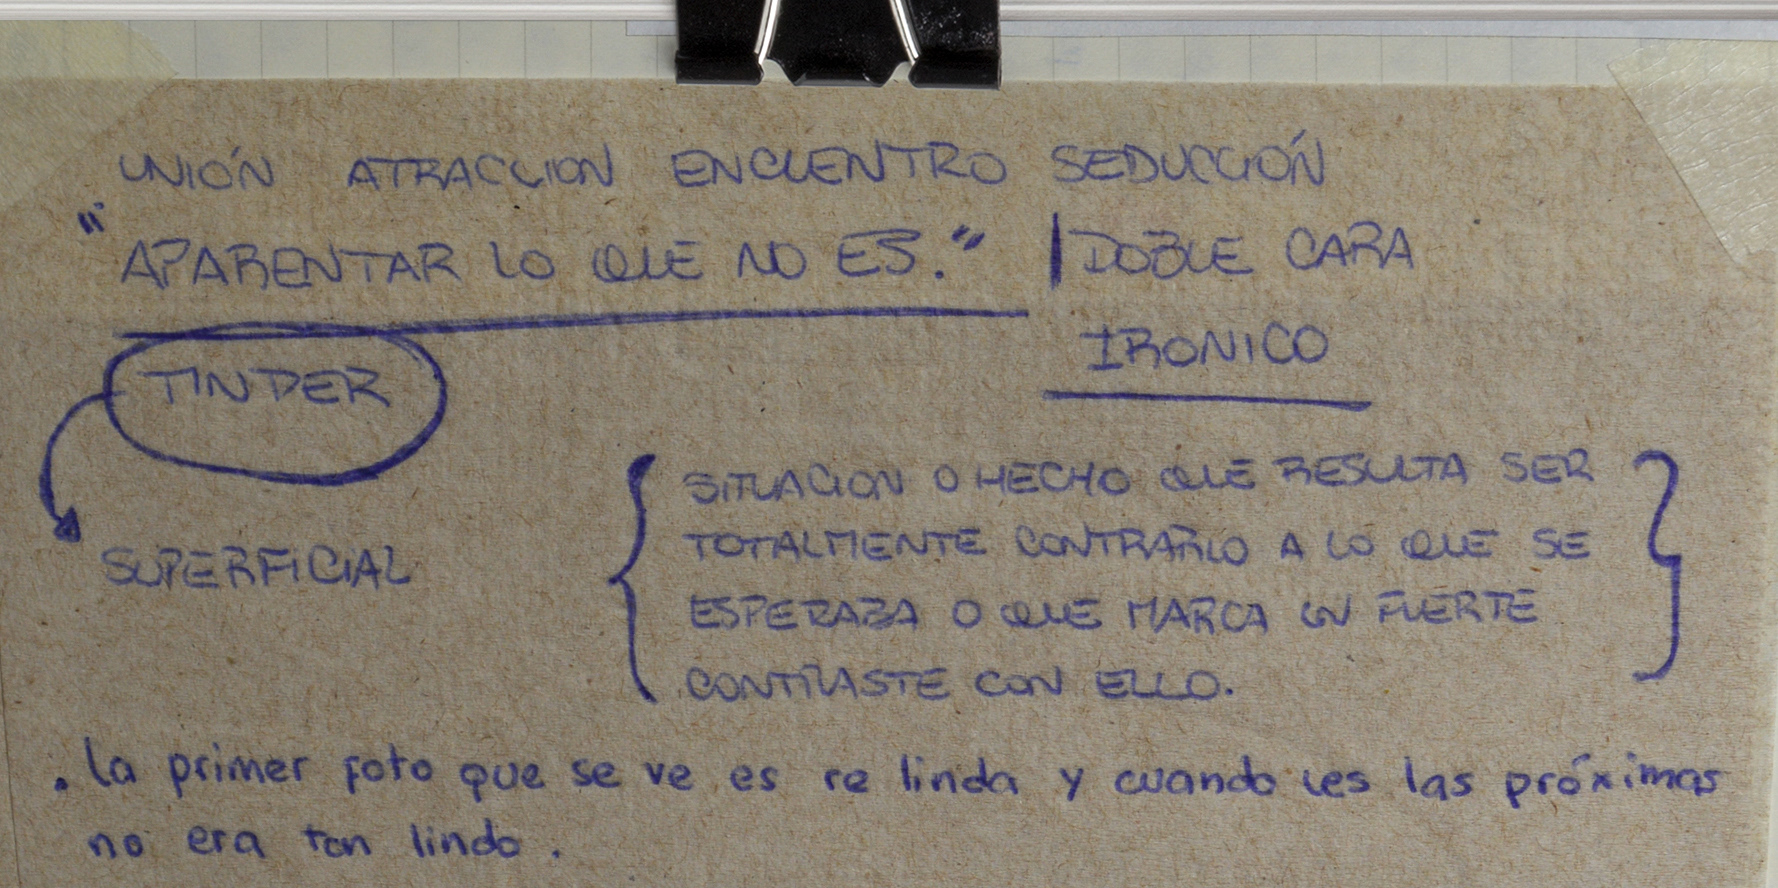 UNIÓN ATRACCION ENCUENTRO SEDUCCIÓN
"APARENTAR LO QUE NO ES." | DOBLE CARA
IRONICO
TINDER
SUPERFICIAL
{ SITUACION O HECHO QUE RESULTA SER }
TOTALMENTE CONTRARIO A LO QUE SE
ESPERABA O QUE MARCA UN FUERTE
CONTRASTE CON ELLO.
. la primer foto que se ve es re linda y cuando ves las próximas
no era tan lindo.